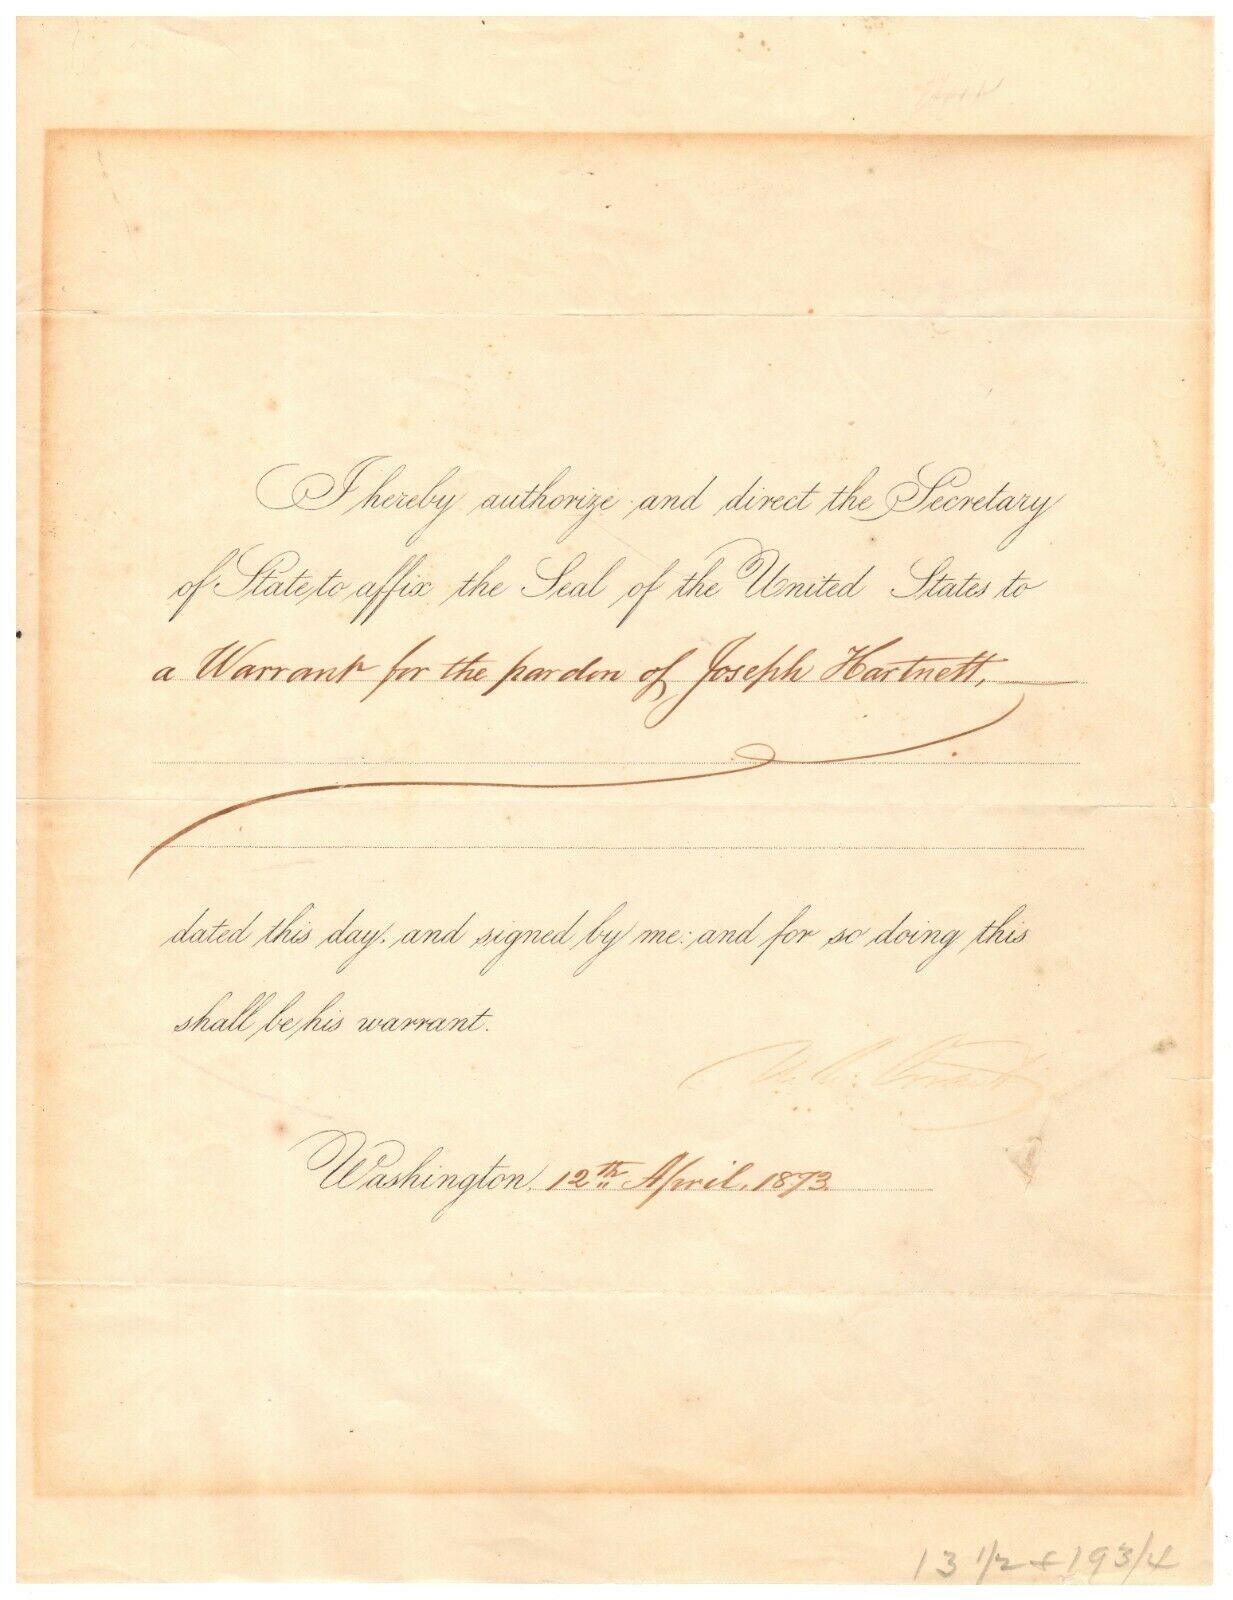 I hereby authorize and direct the Secretary
of State to affix the Seal of the United States to
a Warrant for the pardon of Joseph Hartnett,
dated this day, and signed by me: and for so doing this
shall be his warrant.
U. S. Grant
Washington, 12th April, 1873.
13 1/2 x 19 3/4